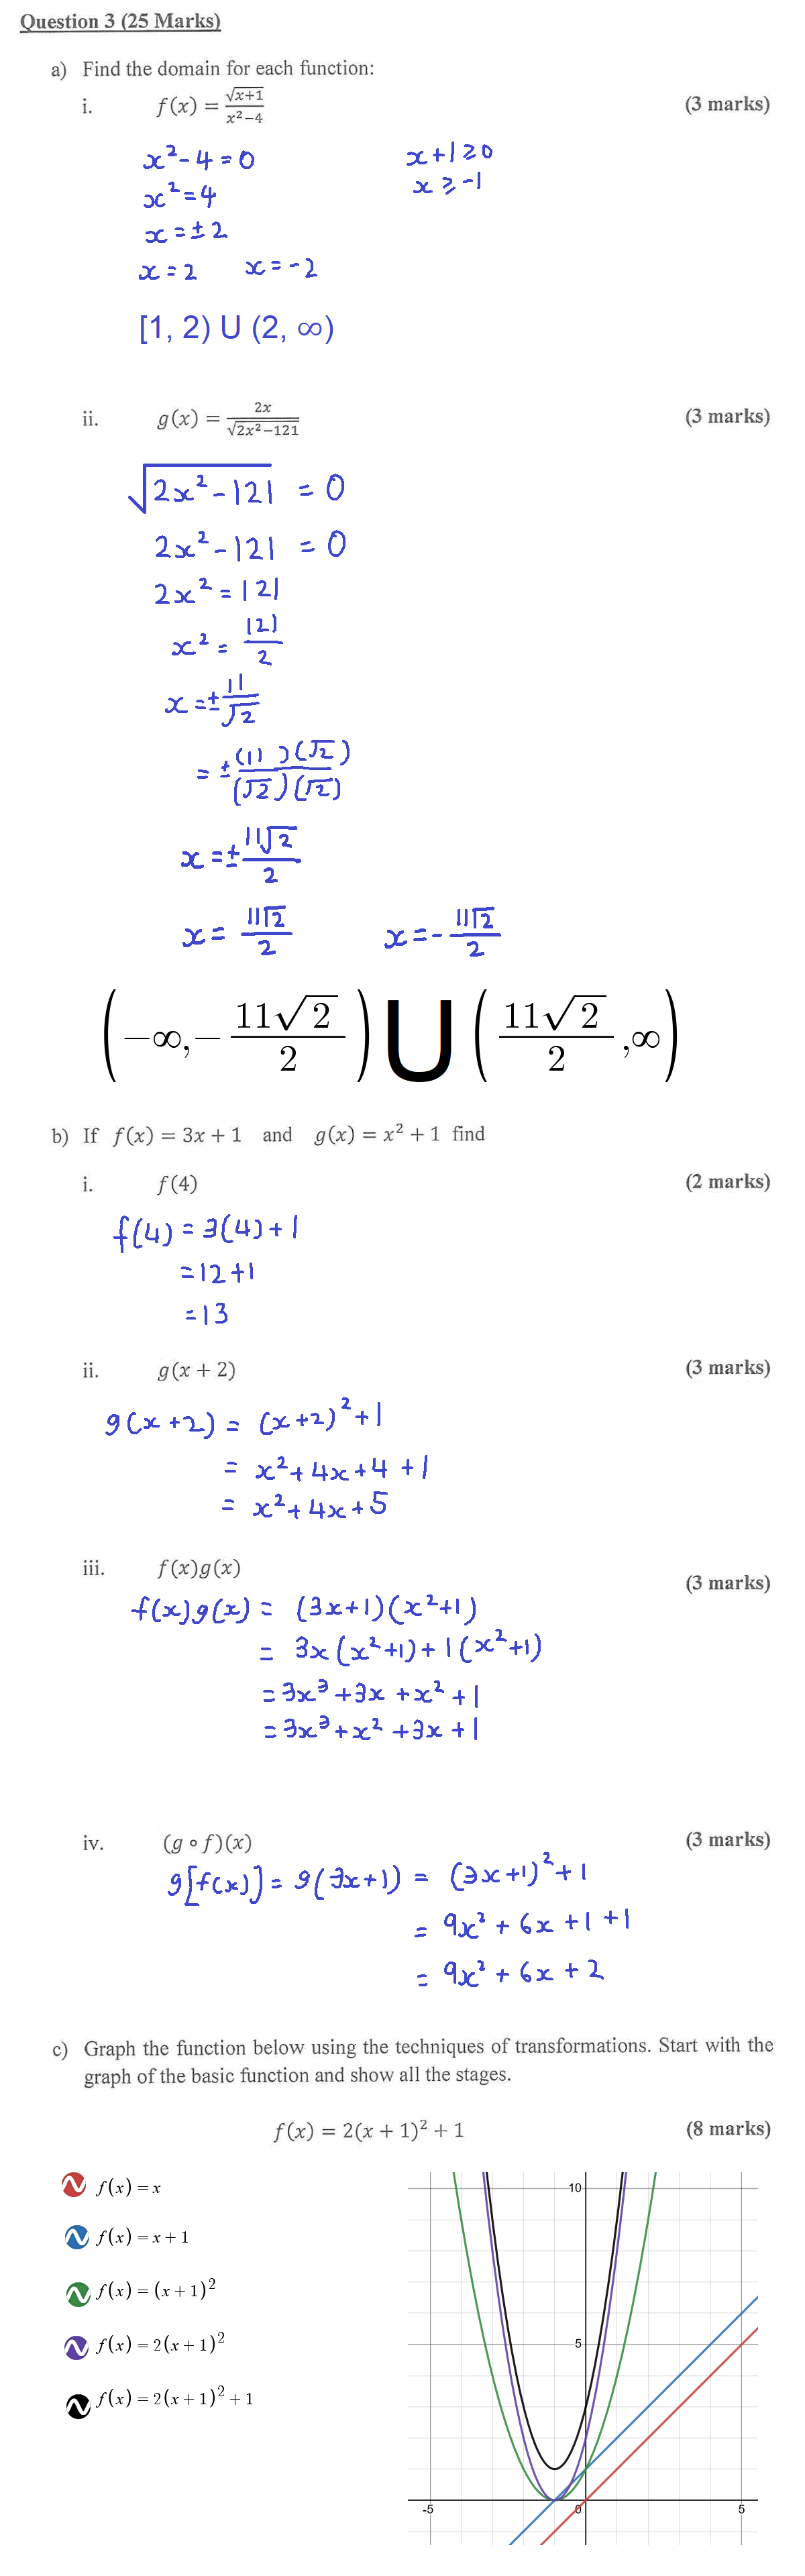 Question 3 (25 Marks)
a) Find the domain for each function:
i. f(x) = √(x+1)/(x²−4) (3 marks)
x² - 4 = 0 x + 1 ≥ 0
x² = 4 x ≥ -1
x = ± 2
x = 2 x = -2
[1, 2) U (2, ∞)
ii. g(x) = 2x/√(2x²−121) (3 marks)
√(2x² - 121) = 0
2x² - 121 = 0
2x² = 121
x² = 121/2
x = ± 11/√2
= ± (11)(√2)/(√2)(√2)
x = ± 11√2/2
x = 11√2/2 x = - 11√2/2
(−∞, − 11√2/2) U (11√2/2, ∞)
b) If f(x) = 3x + 1 and g(x) = x² + 1 find
i. f(4) (2 marks)
f(4) = 3(4) + 1
= 12 + 1
= 13
ii. g(x + 2) (3 marks)
g(x + 2) = (x + 2)² + 1
= x² + 4x + 4 + 1
= x² + 4x + 5
iii. f(x)g(x) (3 marks)
f(x)g(x) = (3x + 1)(x² + 1)
= 3x(x² + 1) + 1(x² + 1)
= 3x³ + 3x + x² + 1
= 3x³ + x² + 3x + 1
iv. (g ∘ f)(x) (3 marks)
g[f(x)] = g(3x + 1) = (3x + 1)² + 1
= 9x² + 6x + 1 + 1
= 9x² + 6x + 2
c) Graph the function below using the techniques of transformations. Start with the
graph of the basic function and show all the stages.
f(x) = 2(x + 1)² + 1 (8 marks)
f(x) = x
f(x) = x + 1
f(x) = (x + 1)²
f(x) = 2(x + 1)²
f(x) = 2(x + 1)² + 1
10
5
-5 0 5